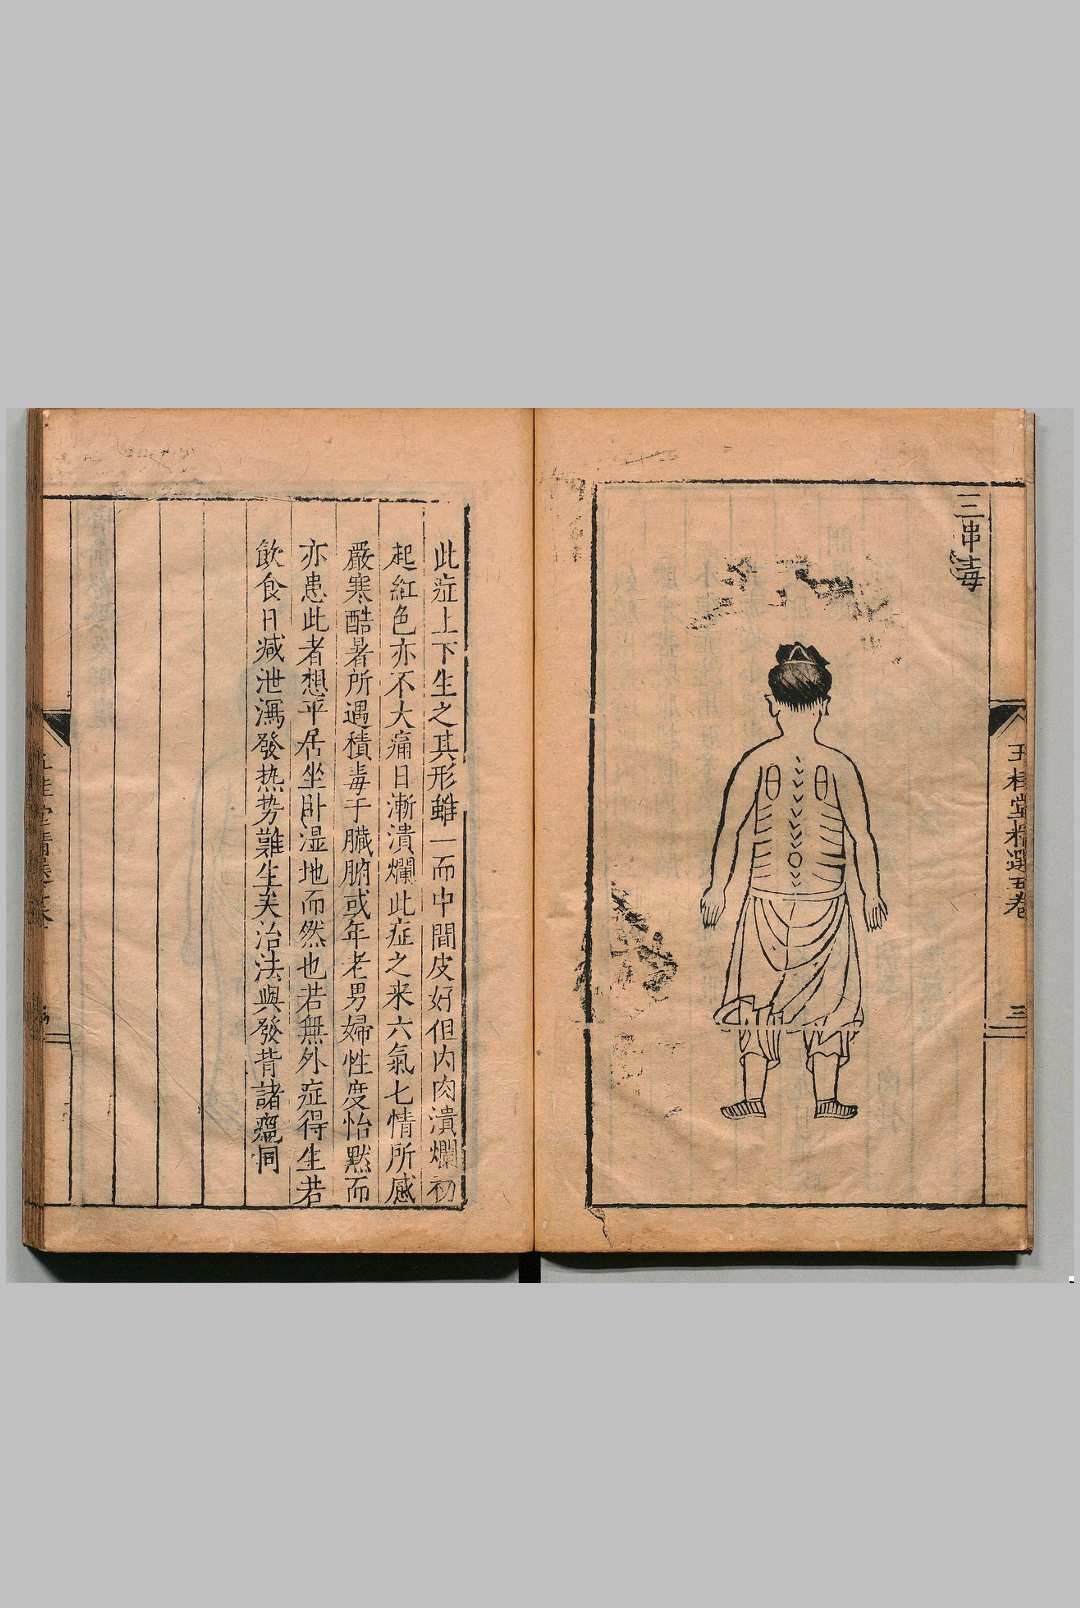 三串毒
玉桂堂精選五卷
三
此症上下生之其形雖一而中間皮好但内肉潰爛初
起紅色亦不大痛日漸潰爛此症之来六氣七情所感
嚴寒酷暑所遇積毒于臓腑或年老男婦性度怡默而
亦患此者想平居坐卧湿地而然也若無外症得生若
飲食日减泄瀉發热势難生矣治法與發背諸瘟同